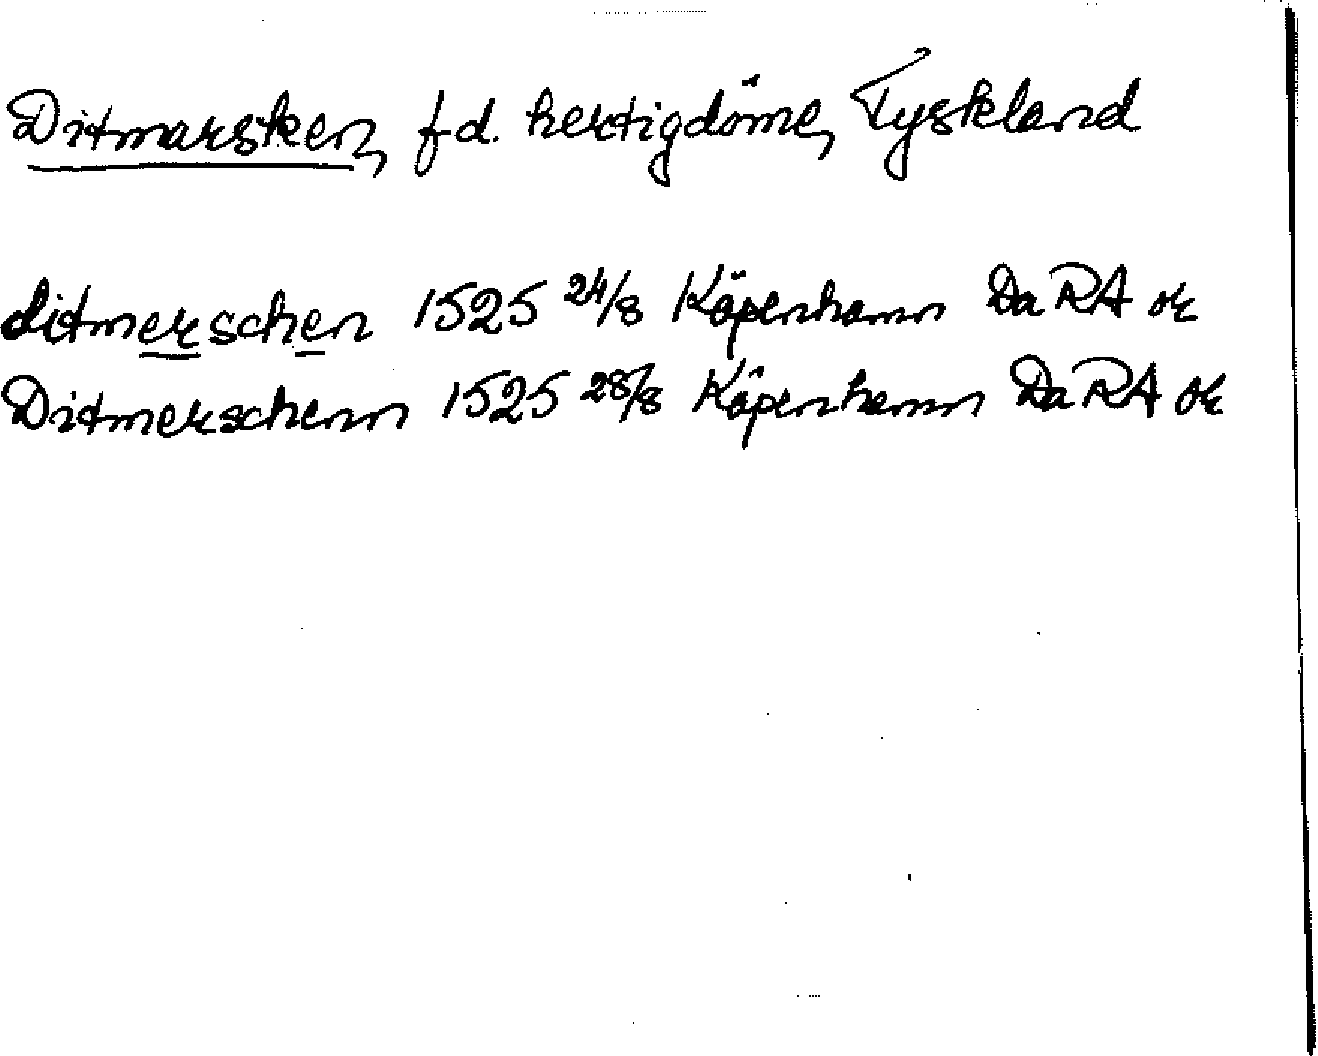 Ditmarsken, fd. hertigdöme, Tyskland
ditmerschen 1525 24/8 Köpenhamn DaRA or
Ditmerschenn 1525 28/8 Köpenhamn DaRA or